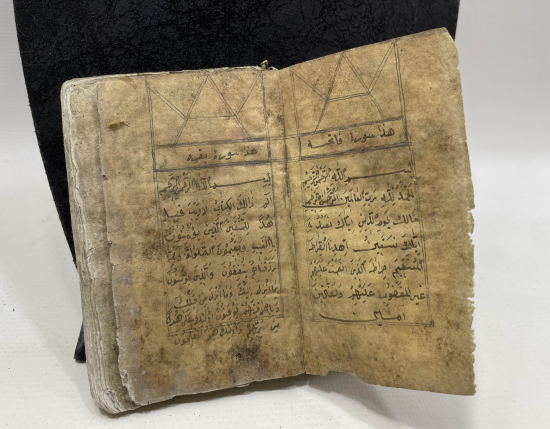 هذا سورة فاتحه
بسم الله الرحمن الرحيم
الحمد لله رب العالمين الرحمن الرحيم
مالك يوم الدين اياك نعبد و
اياك نستعين اهدنا الصراط
المستقيم صراط الذين انعمت عليهم
غير المغضوب عليهم
امين
هذا سورة بقره
بسم الله الرحمن الرحيم
الم ذلك الكتاب لا ريب فيه
هدى للمتقين الذين يؤمنون
بالغيب و يقيمون الصلوة و مما
رزقناهم ينفقون والذين يؤمنون
بما انزل اليك وما انزل من قبلك
وبالاخرة هم يوقنون اولئك على هدى
من ربهم و اولئك هم المفلحون